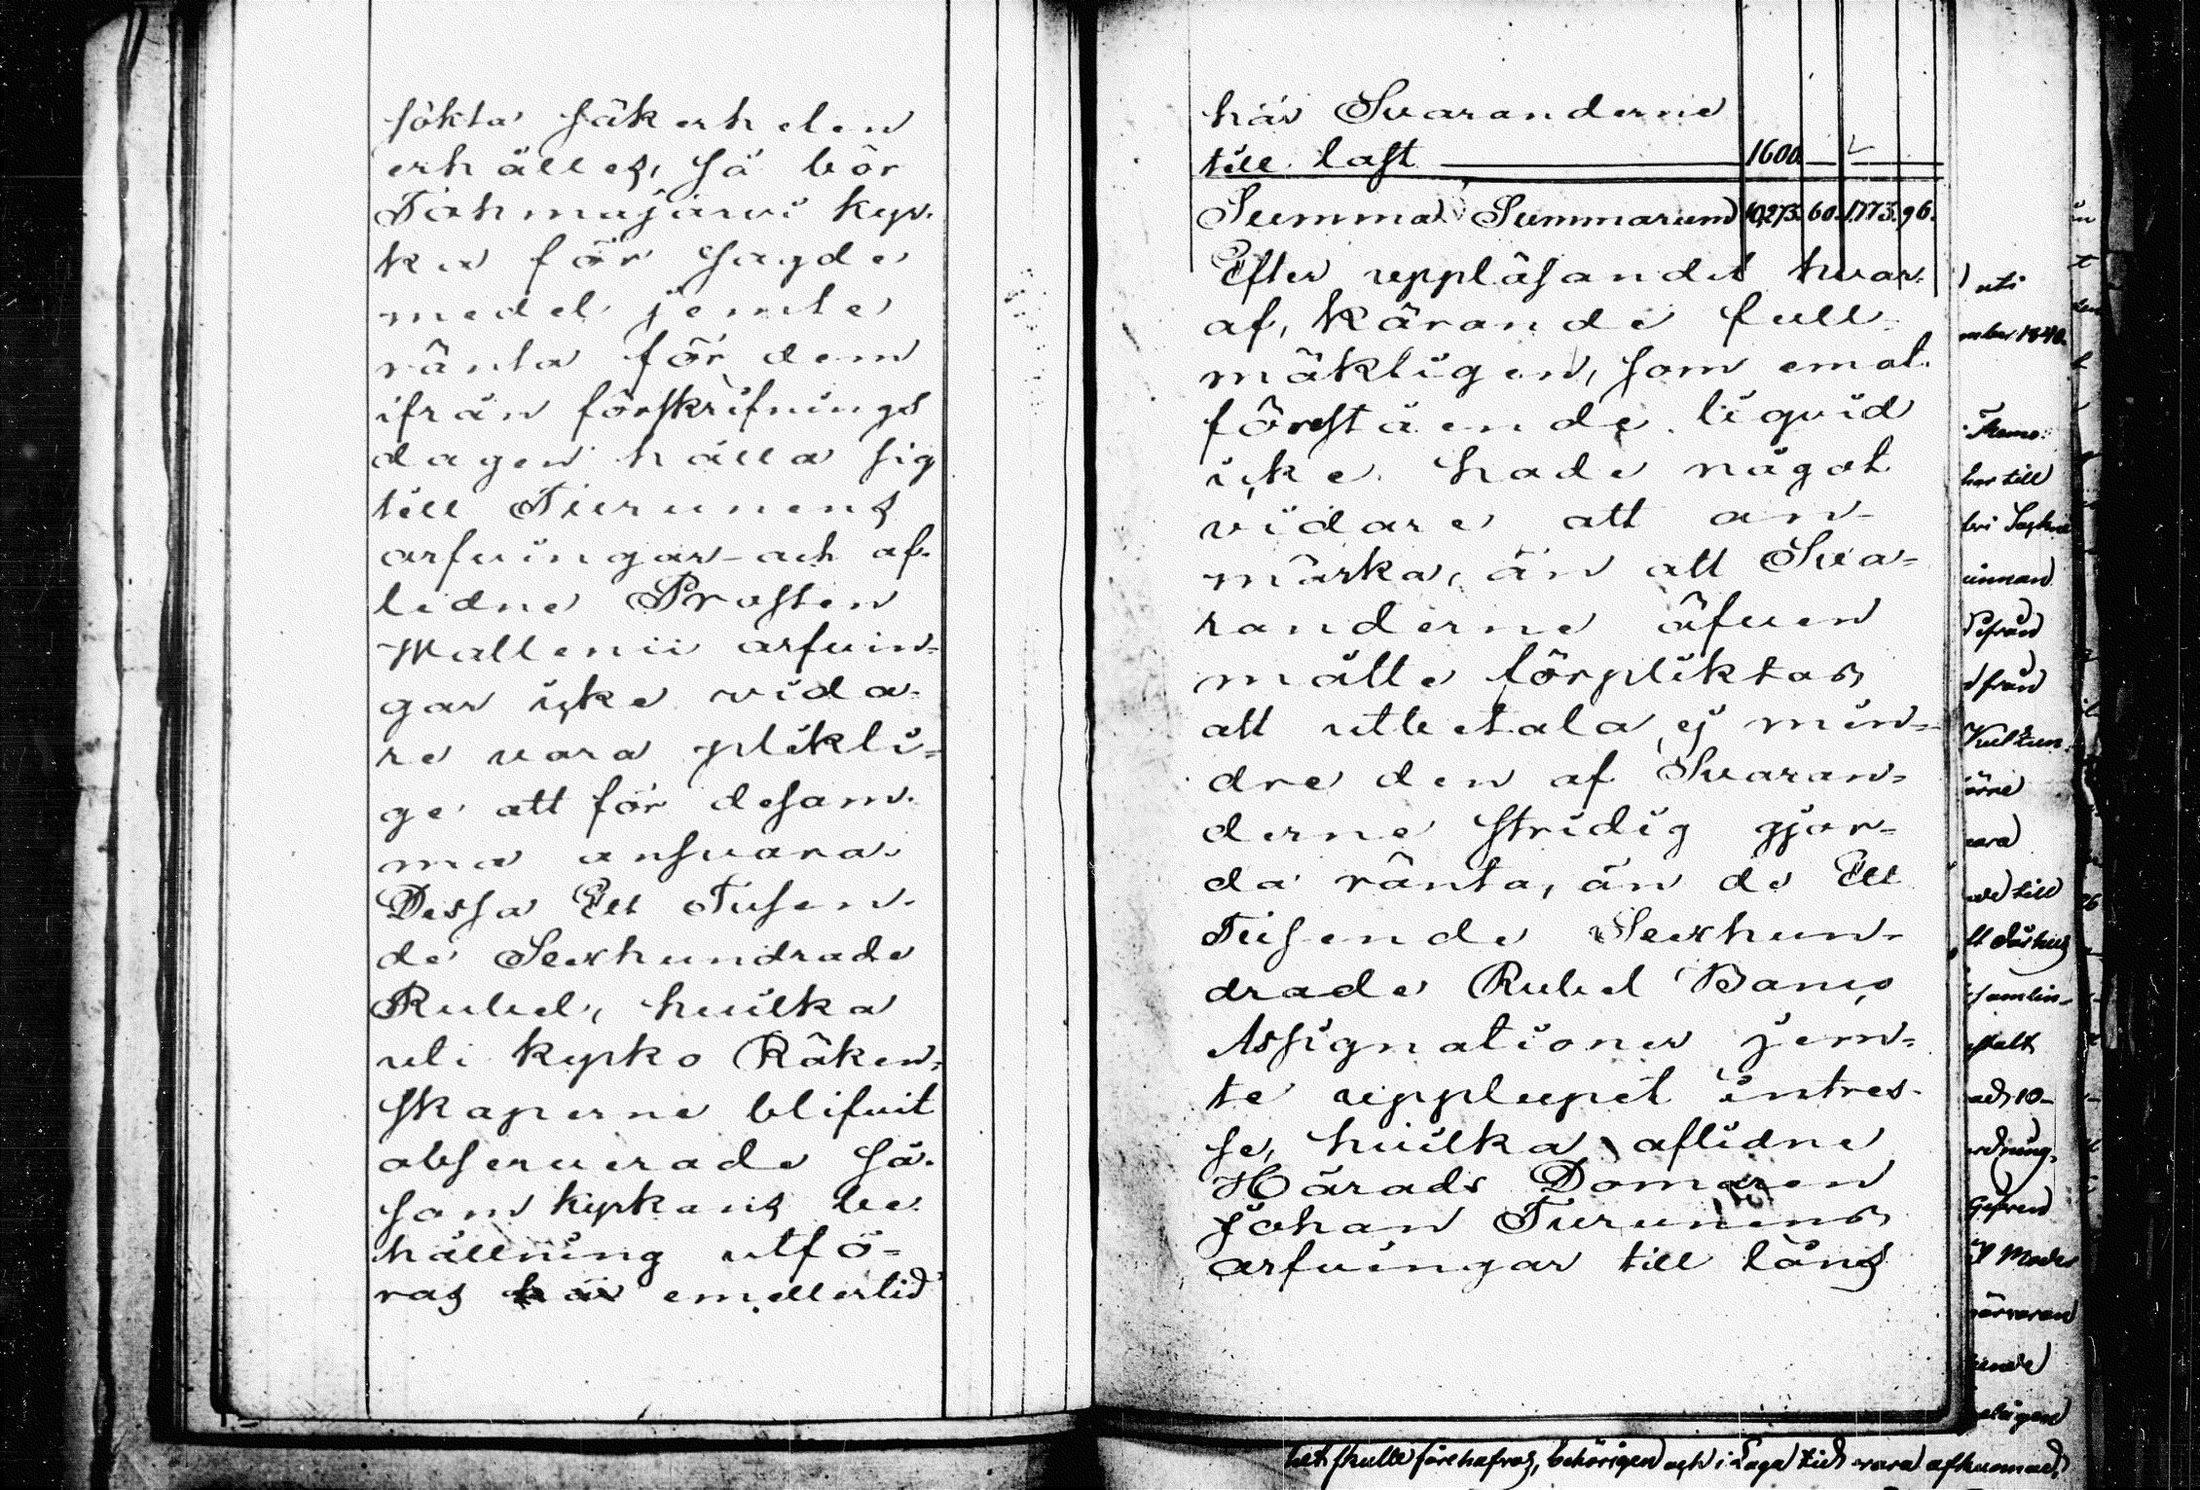 sökta säkerheten
erhålles, så bör
Tohmajärvi kyr-
ka för sagde
medel jemte
ränta för dem
ifrån förskrifnings
dagen hålla sig
till Turunens
arfvingar och af-
lidne Prosten
Wallenii arfvin-
gar icke vida-
re vara plikti-
ge att för desam-
ma ansvara.
Dessa Ett Tusen-
de Sexhundrade
Rubel, hvilka
uti kyrko Räken-
skaperne blifvit
observerade så-
som kyrkans be-
hållning utfö-
ras här emellertid
här Svaranderne
till last 1600. — —
Summa Summarum 10,273. 60. 1,773. 96.
Efter uppläsandet hvar-
af, Kärande full-
mäktigen, som emot
förestående liqvid
icke hade något
vidare att an-
märka, än att Sva-
randerne äfven
måtte förpliktas
att utbetala ej min-
dre den af Svaran-
derne stridig gjor-
da ränta, än de Ett
Tusende Sexhun-
drade Rubel Banco
Assignationer jem-
te upplupet intres-
se, hvilka aflidne
Härads Domaren
Johan Turunens
arfvingar till låns
uti
mber 1840.
har till
innan
ifrån
från
vara
till
samlin-
ad 10-
ordning,
närvaran
het skulle förehafvas, behörigen och i Laga tid vara afkunnad,